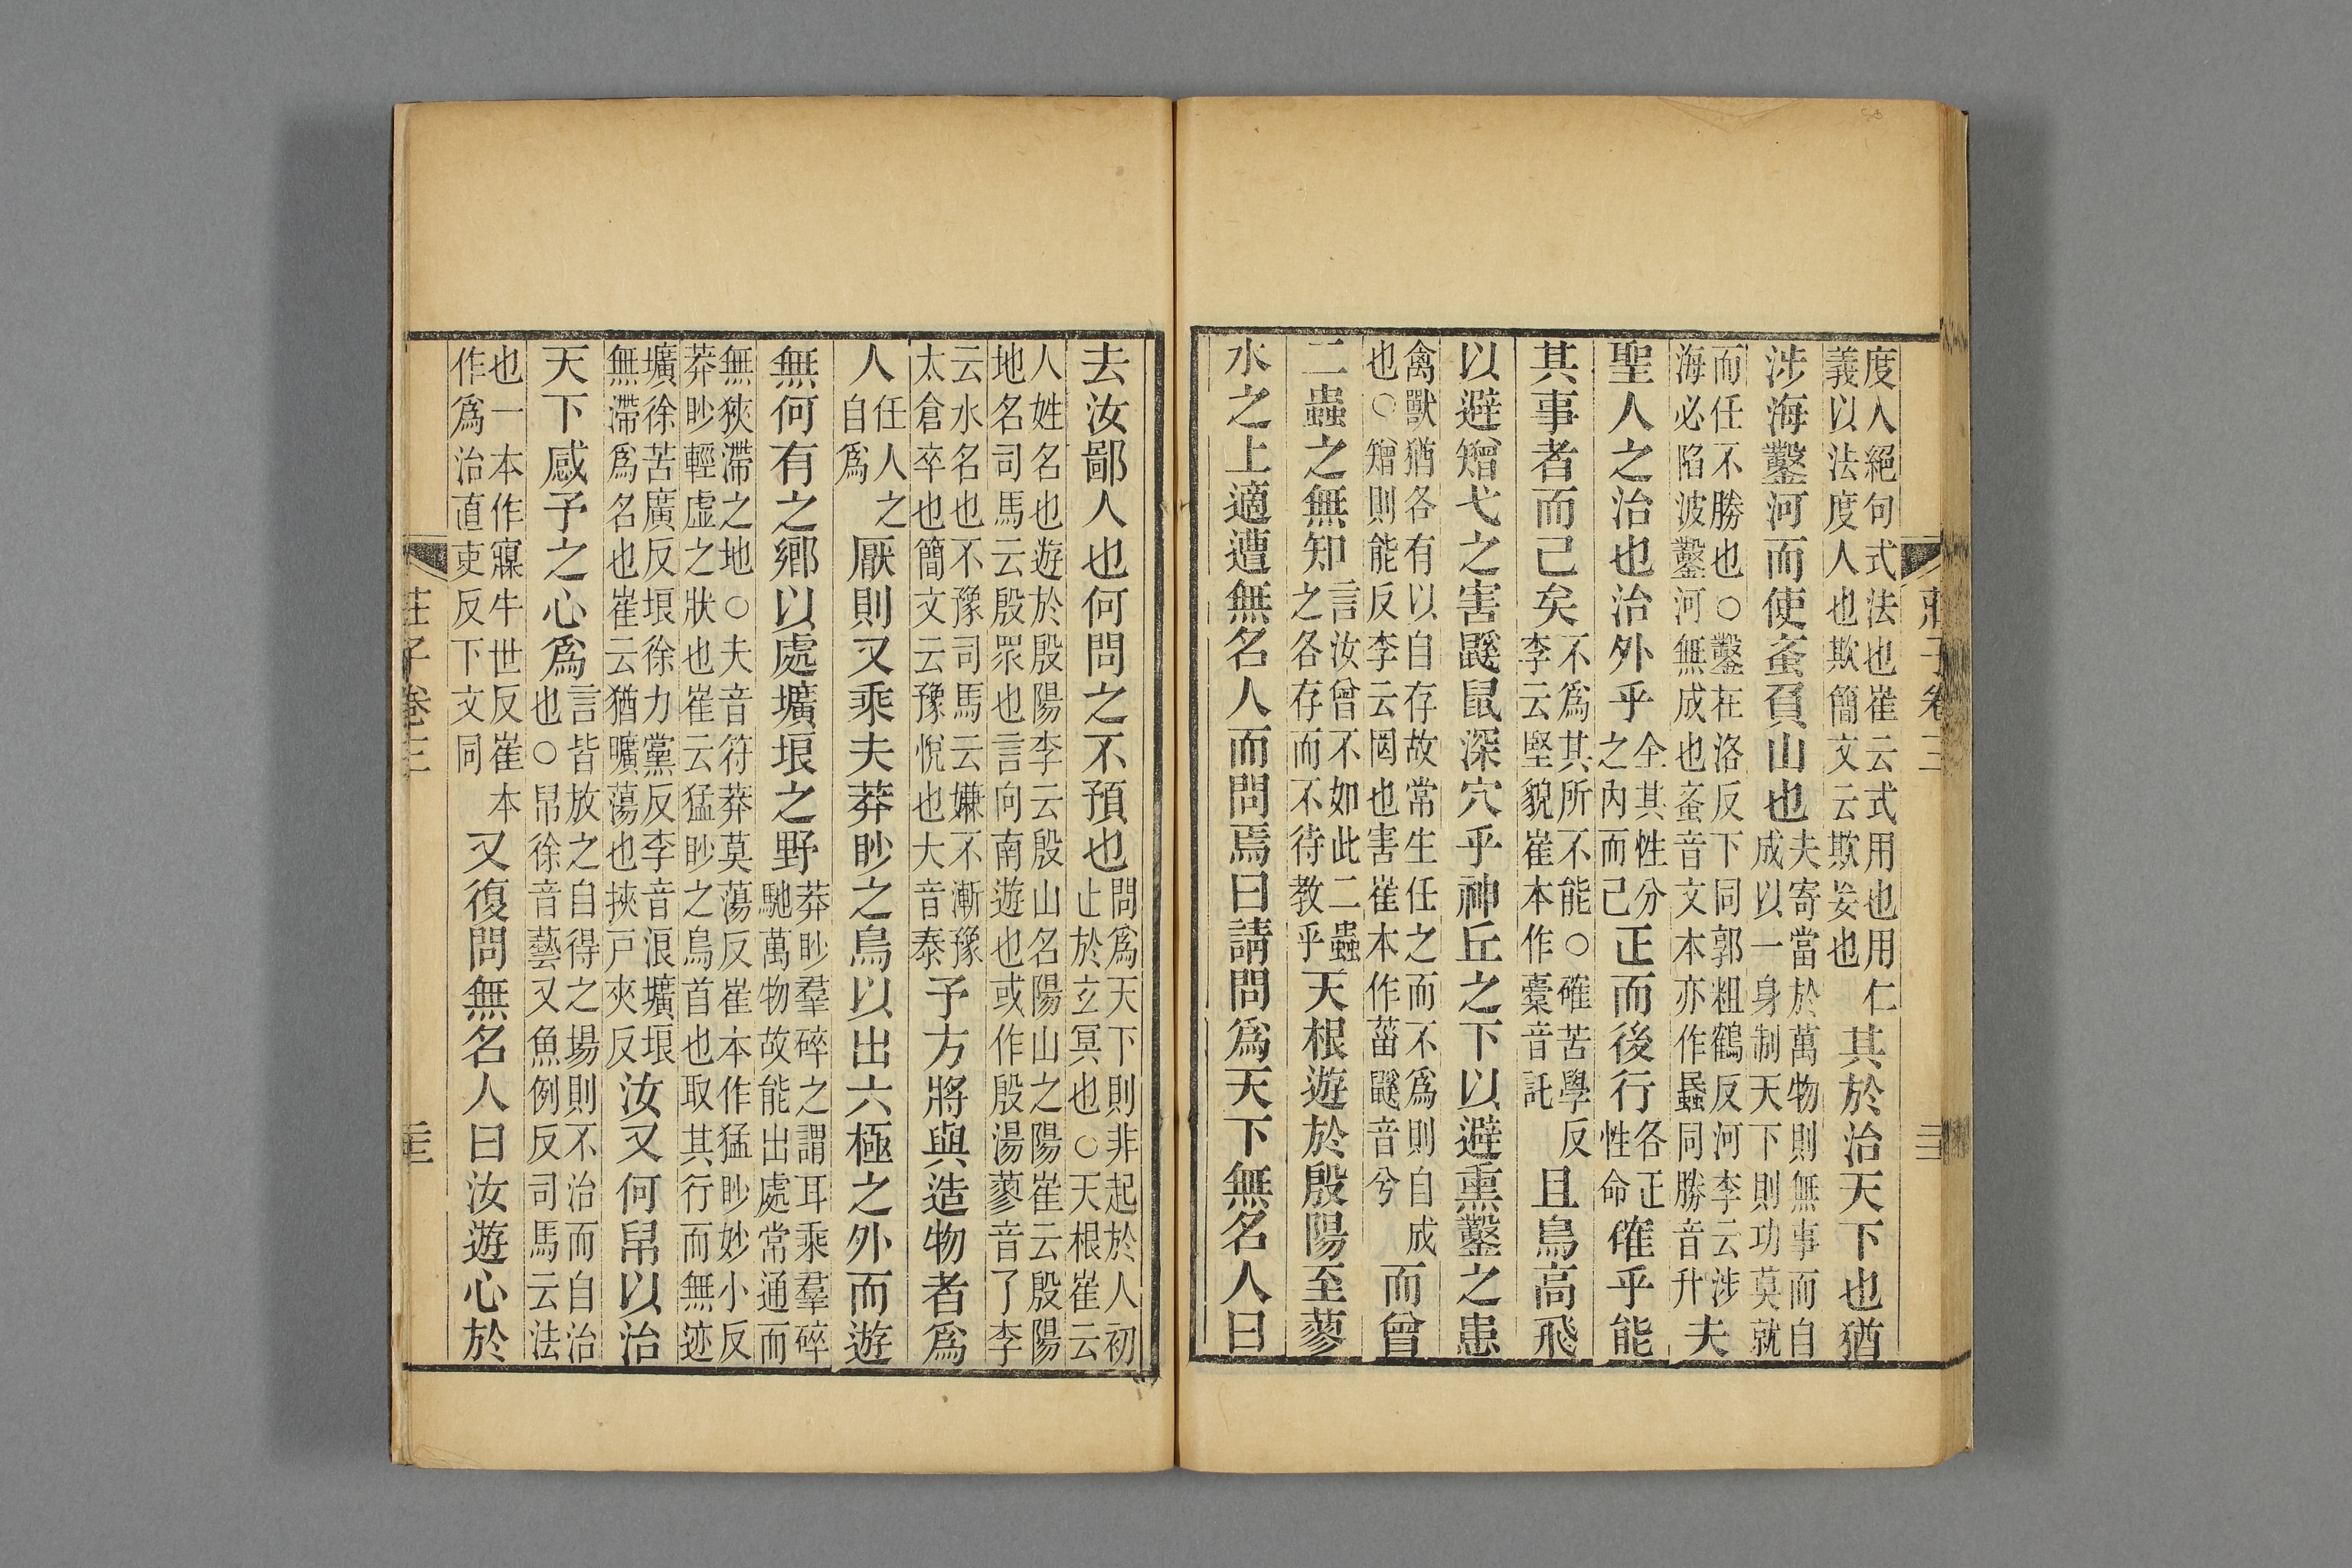 莊子卷三
度人絕句式法也崔云式用也用仁
義以法度人也欺簡文云欺妄也
其於治天下也猶
涉海鑿河而使蚉負山也
夫寄當於萬物則無事而自
成以一身制天下則功莫就
而任不勝也○鑿在洛反下同郭粗鶴反河李云涉
海必陷波鑿河無成也蚉音文本亦作䘇同勝音升
夫
聖人之治也治外乎
全其性分
之內而已
正而後行
各正
性命
確乎能
其事者而已矣
不為其所不能○確苦學反
李云堅貌崔本作橐音託
且鳥高飛
以避矰弋之害鼷鼠深穴乎神丘之下以避熏鑿之患
禽獸猶各有以自存故常生任之而不為則自成
也○矰則能反李云罔也害崔本作菑鼷音兮
而曾
二蟲之無知
言汝曾不如此二蟲
之各存而不待教乎
天根遊於殷陽至蓼
水之上適遭無名人而問焉曰請問為天下無名人曰
去汝鄙人也何問之不預也
問為天下則非起於人初
止於玄冥也○天根崔云
人姓名也遊於殷陽李云殷山名陽山之陽崔云殷陽
地名司馬云殷眾也言向南遊也或作殷湯蓼音了李
云水名也不豫司馬云嫌不漸豫
太倉卒也簡文云豫悅也大音泰
予方將與造物者為
人
任人之
自為
厭則又乘夫莽眇之鳥以出六極之外而遊
無何有之鄉以處壙埌之野
莽眇羣碎之謂耳乘羣碎
馳萬物故能出處常通而
無狹滯之地○夫音符莽莫蕩反崔本作猛眇妙小反
莽眇輕虛之狀也崔云猛眇之鳥首也取其行而無迹
壙徐苦廣反埌徐力黨反李音浪壙埌
無滯為名也崔云猶曠蕩也挾戶夾反
汝又何帠以治
天下感予之心為
言皆放之自得之場則不治而自治
也○帠徐音藝又魚例反司馬云法
也一本作寱牛世反崔本
作為治直吏反下文同
又復問無名人曰汝遊心於
莊子卷三